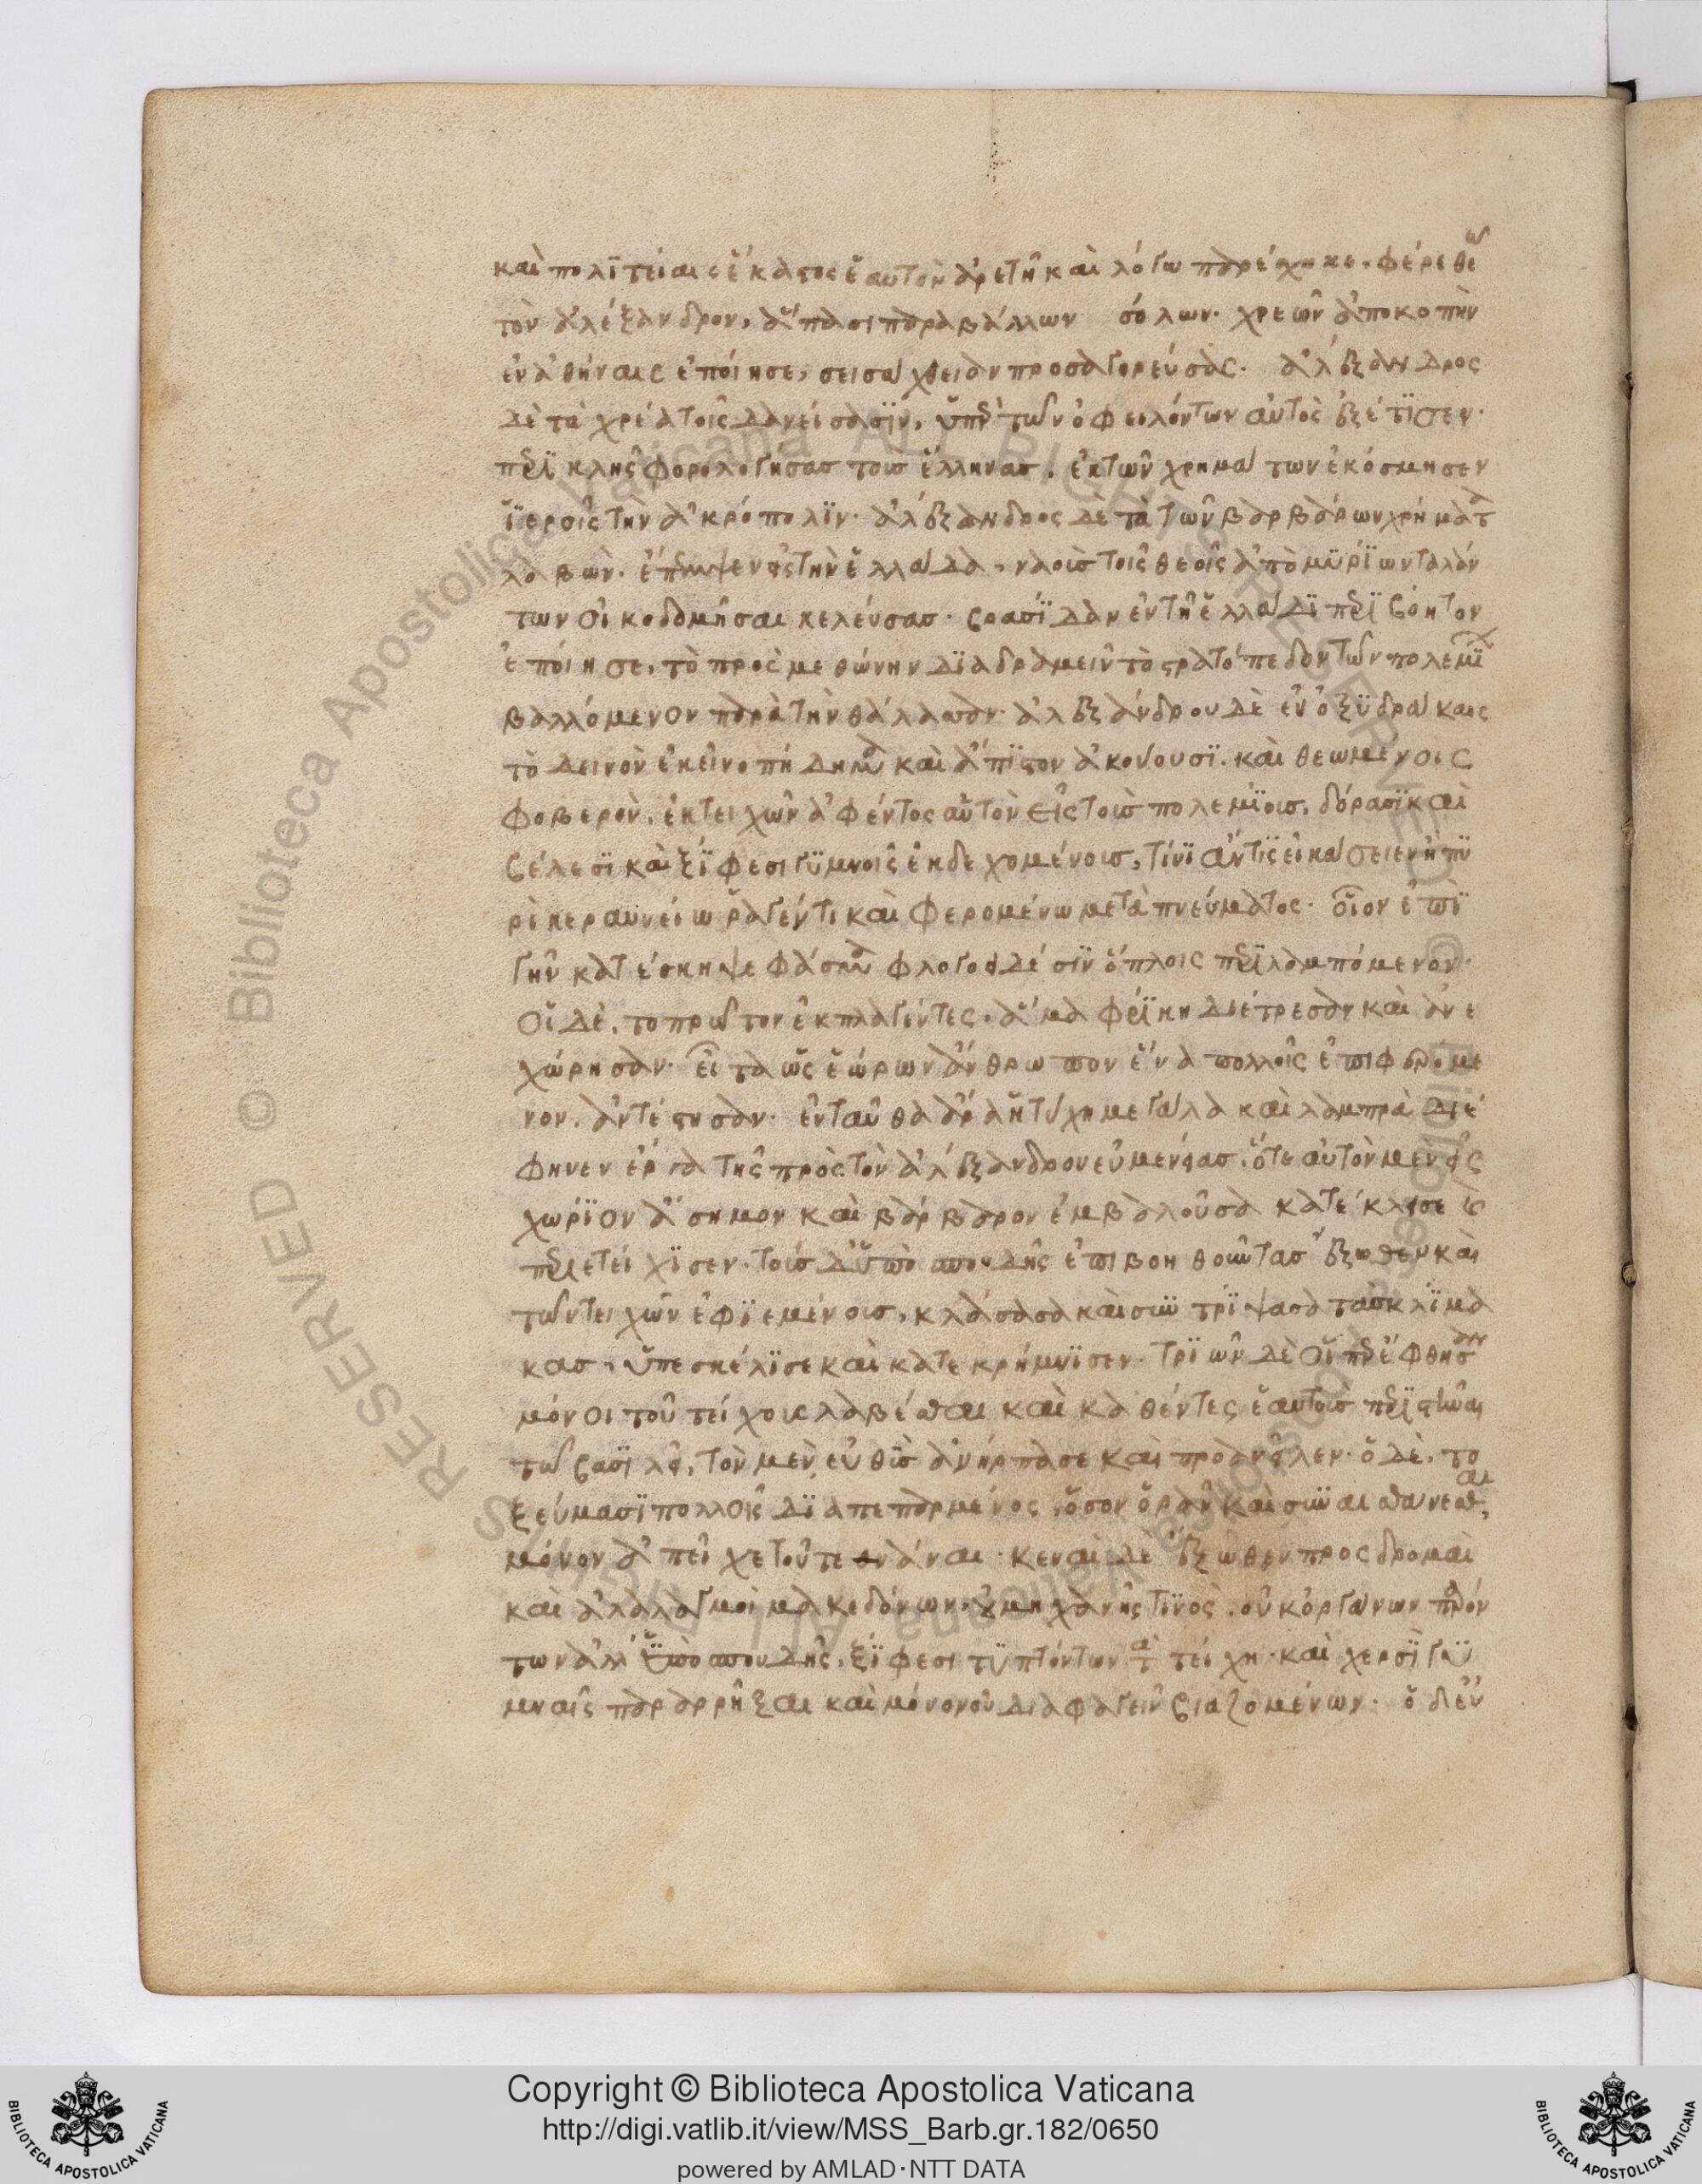 καὶ πολϊτείαις ἕκαστος ἑαυτὸν ἀρετῆ καὶ λόγω παρέσχηκε. φέρε θεῶ
τὸν ἀλέξανδρον, ἅπασι παραβάλλων σόλων. χρεῶν ἀποκοπὴν
ἐν ἀθήναις ἐποίησε, σεισάχθειαν προσαγορεύσας. ἀλέξανδρος
δὲ τὰ χρέα τοῖς δανείσασϊν, ὑπὲρ τῶν ὀφειλόντων αὐτὸς ἐξέτϊσεν.
περϊκλῆς φορολογήσας τοὺς ἕλληνας, ἐκ τῶν χρημάτων ἐκόσμησεν
ἱεροῖς τὴν ἀκρόπολϊν. ἀλέξανδρος δὲ τὰ τῶν βαρβάρων χρήματα
λαβὼν. ἔπεμψεν εἰς τὴν ἑλλάδα, ναοὺς τοῖς θεοῖς ἀπὸ μϋρΐων ταλάν
των οἰκοδομῆσαι κελεύσας. βρασΐδαν ἐν τῆ ἑλλάδϊ περϊβόητον
ἐποίησε, τὸ πρὸς μεθώνην δϊαδραμεῖν τὸ στρατόπεδον τῶν πολεμΐων
βαλλόμενον παρὰ τὴν θάλασσαν. ἀλεξάνδρου δὲ ἐν ὀξϋδράκαις
τὸ δεινὸν ἐκεῖνο πήδημα καὶ ἄπϊστον ἀκούουσϊ. καὶ θεωμένοις
φοβερὸν, ἐκ τειχῶν ἀφέντος αὑτὸν εἰς τοὺς πολεμΐους, δόρασϊ καὶ
βέλεσϊ καὶ ξΐφεσι γϋμνοῖς ἐκδεχομένους, τίνϊ ἄν τϊς εἰκάσειεν ἢ πυ
ρὶ κεραυνείω ῥαγέντι καὶ φερομένω μετὰ πνεύματος. οἷον ἐπὶ
γῆν κατέσκηψε φάσμα φλογοειδέσϊν ὅπλοις περϊλαμπόμενον.
Οἱ δὲ, τὸ πρῶτον ἐκπλαγέντες, ἅμα φρΐκη διέτρεσαν καὶ ἀνε
χώρησαν. εἶτα ὡς ἑώρων ἄνθρωπον ἕνα πολλοῖς ἐπιφερόμε
νον, ἀντέστησαν. ἐνταῦθα ἄρα ἡ τύχη μεγάλα καὶ λαμπρὰ διέ
φηνεν ἔργα τῆς πρὸς τὸν ἀλέξανδρον εὐμενείας, ὅτε αὐτὸν μὲν εἰς
χωρΐον ἄσημον καὶ βάρβαρον ἐμβαλοῦσα κατέκλεισε καὶ
περιετείχϊσεν. τοὺς δ' ὑπὸ σπουδῆς ἐπιβοηθοῦντας ἔξωθεν καὶ
τῶν τειχῶν ἐφϊεμένους, κλάσασα καὶ συντρΐψασα τὰς κλΐμα
κας, ὑπεσκέλϊσε καὶ κατεκρήμνϊσεν. τρϊῶν δὲ οἵπερ ἔφθησαν
μόνοι τοῦ τείχους λαβέσθαι καὶ καθέντες ἑαυτοὺς περϊστῆναι
τῶ βασϊλεῖ, τὸν μὲν εὐθὺς ἀνήρπασε καὶ προανεῖλεν. ὁ δὲ, το
ξεύμασϊ πολλοῖς δϊαπεπαρμένος, ὅσον ὁρᾶν καὶ συναισθάνεσθαι,
μόνον ἀπεῖχε τοῦ τεθνάναι. κεναὶ δὲ ἔξωθεν προσδρομαὶ
καὶ ἀλαλαγμοὶ μακεδόνων, οὐ μηχανῆς τϊνὸς, οὐκ ὀργάνων παρόν
των ἀλλ' ὑπὸ σπουδῆς, ξΐφεσι τϋπτόντων τὰ τείχη. καὶ χερσϊ γϋ
μναῖς παραρρῆξαι καὶ μόνον οὐ διαφαγεῖν βιαζομένων. ὁ δ' εὐ
BIBLIOTECA APOSTOLICA VATICANA
Copyright © Biblioteca Apostolica Vaticana
http://digi.vatlib.it/view/MSS_Barb.gr.182/0650
powered by AMLAD·NTT DATA
BIBLIOTECA APOSTOLICA VATICANA